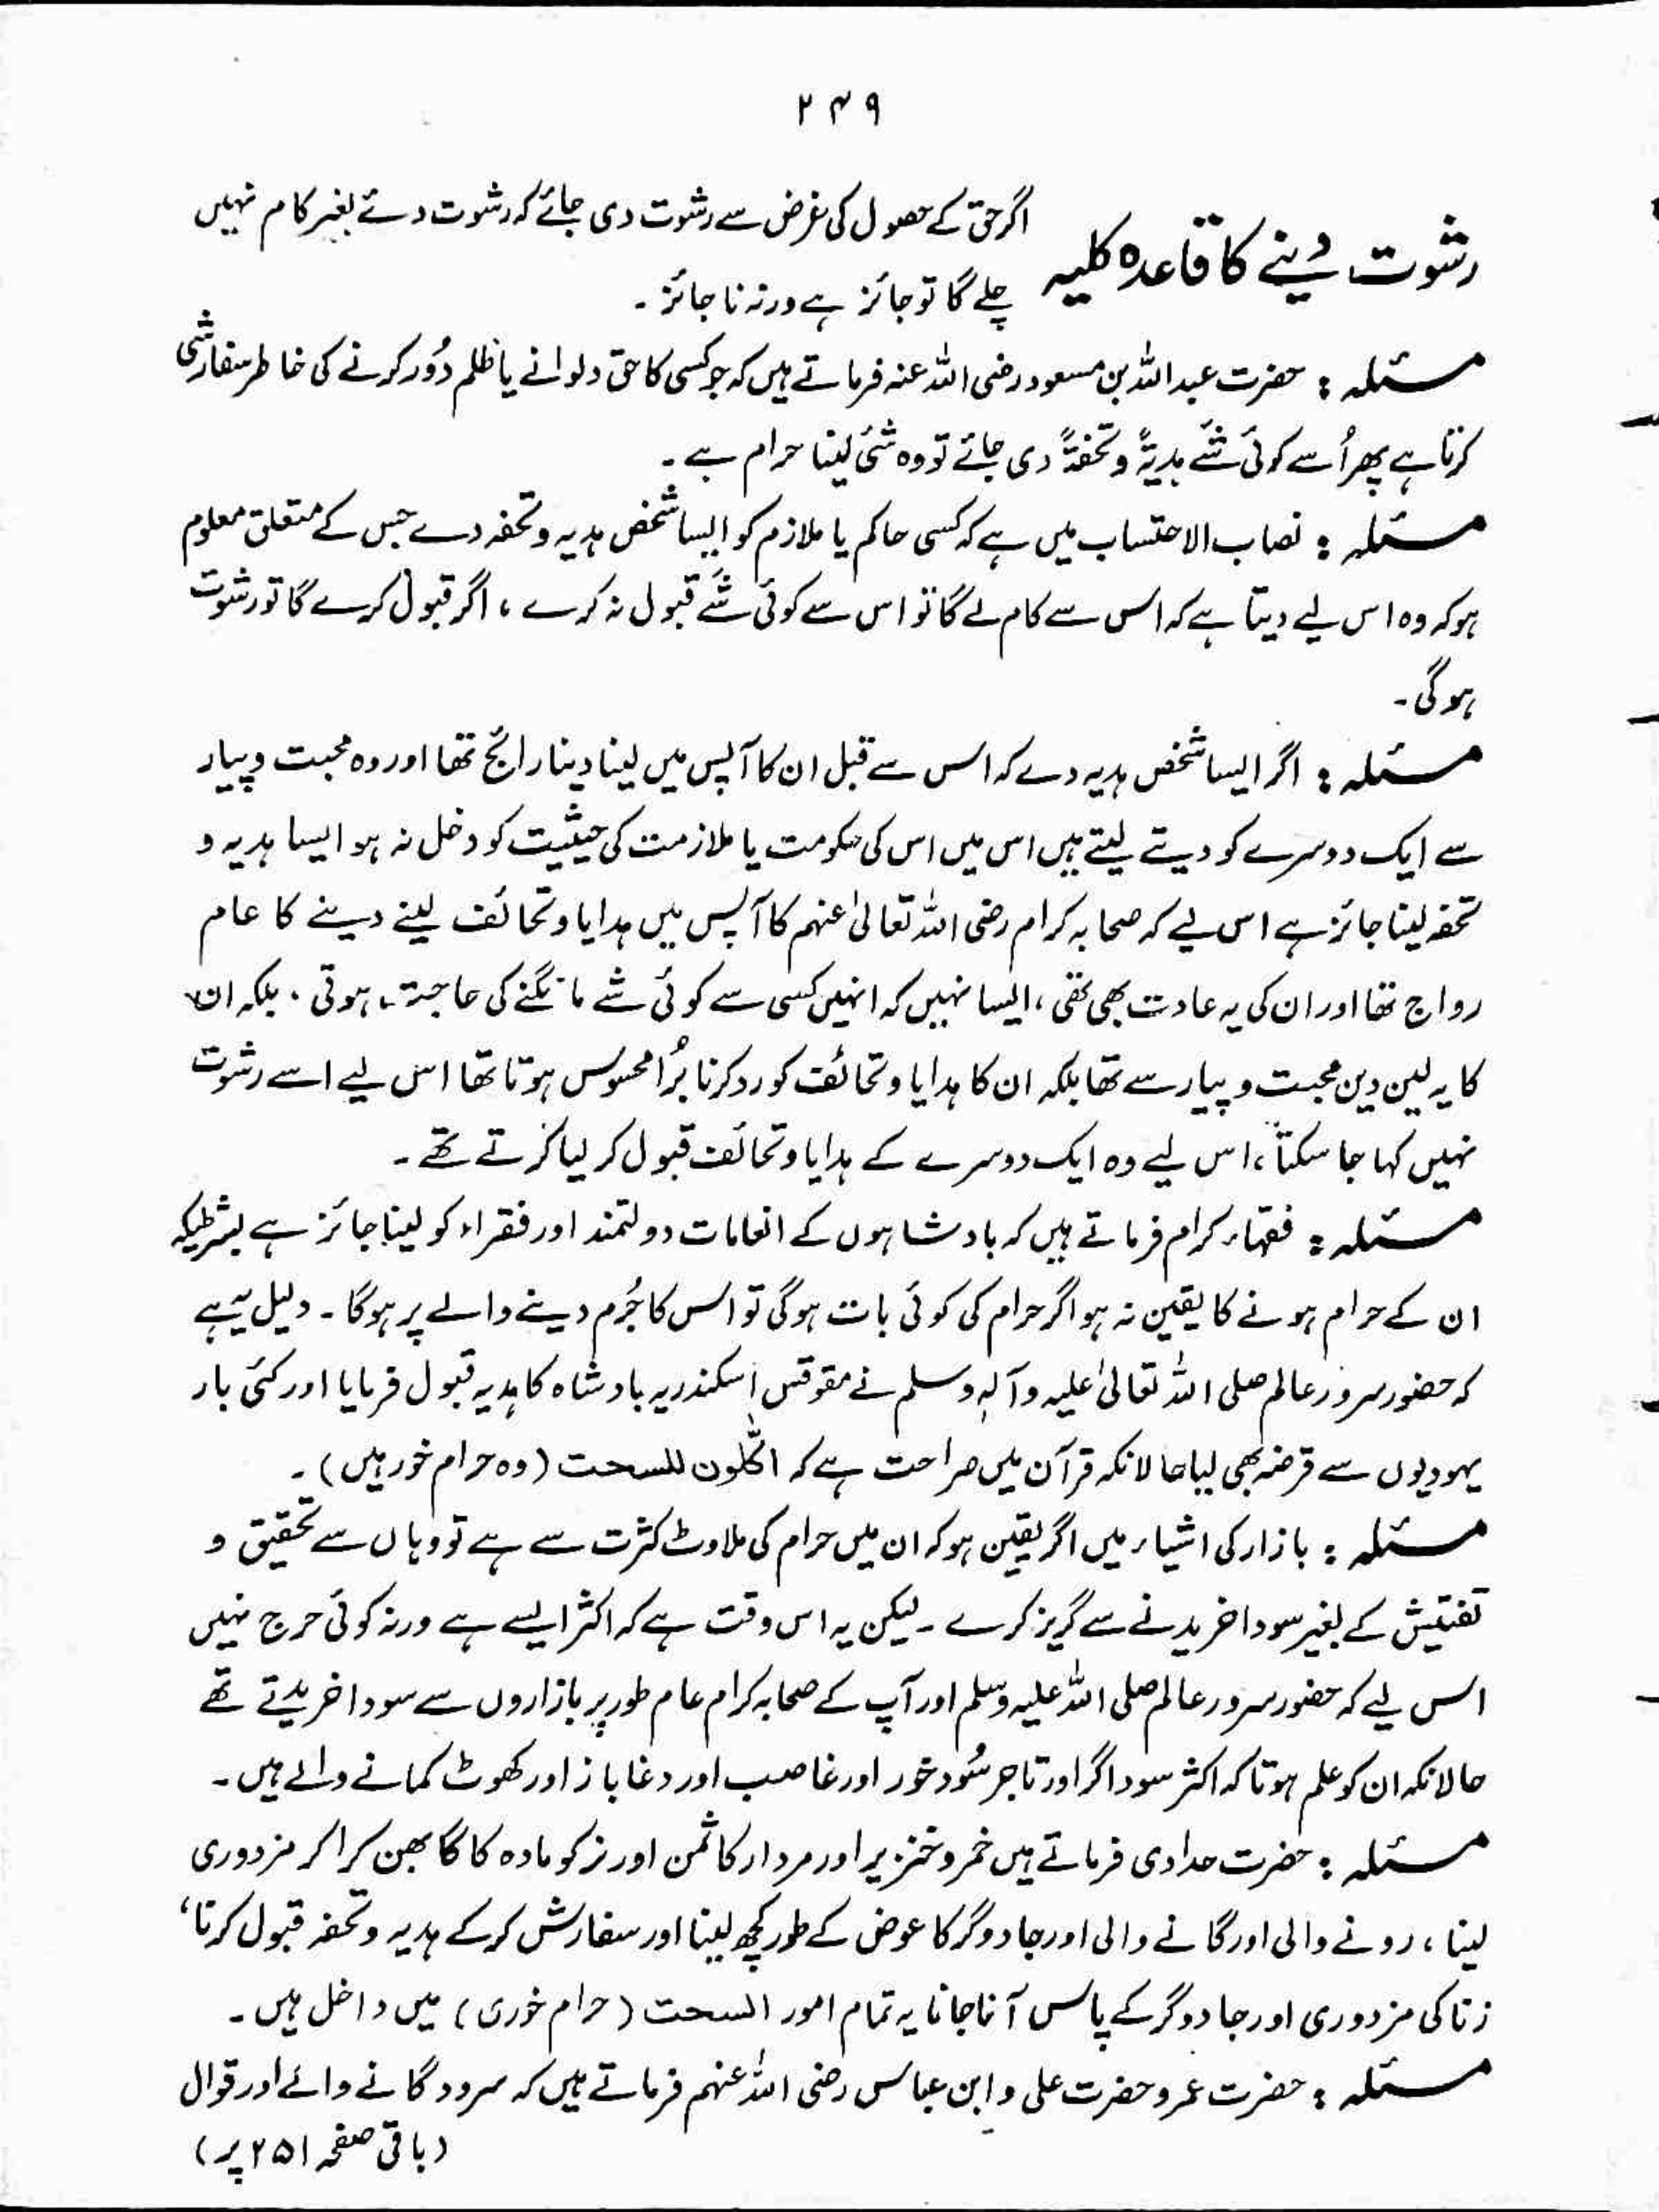 ۲۴۹
رشوت دینے کا قاعدہ کلیہ
اگر حق کے حصول کی غرض سے رشوت دی جائے کہ رشوت دئے بغیر کام نہیں
چلے گا تو جائز ہے ورنہ ناجائز۔
مسئلہ : حضرت عبداللہ بن مسعود رضی اللہ عنہ فرماتے ہیں کہ جو کسی کا حق دلوانے یا ظلم دُور کرنے کی خاطر سفارشی
کرتا ہے پھر اُسے کوئی شَے ہدیۃً وتحفۃً دی جائے تو وہ شئی لینا حرام ہے۔
مسئلہ : نصاب الاحتساب میں ہے کہ کسی حاکم یا ملازم کو ایسا شخص ہدیہ وتحفہ دے جس کے متعلق معلوم
ہو کہ وہ اس لیے دیتا ہے کہ اس سے کام لے گا تو اس سے کوئی شَے قبول نہ کرے ، اگر قبول کرے گا تو رشوت
ہوگی۔
مسئلہ : اگر ایسا شخص ہدیہ دے کہ اس سے قبل ان کا آپس میں لینا دینا رائج تھا اور وہ محبت و پیار
سے ایک دوسرے کو دیتے لیتے ہیں اس میں اس کی حکومت یا ملازمت کی حیثیت کو دخل نہ ہو ایسا ہدیہ و
تحفہ لینا جائز ہے اس لیے کہ صحابہ کرام رضی اللہ تعالیٰ عنہم کا آپس میں ہدایا و تحائف لینے دینے کا عام
رواج تھا اور ان کی یہ عادت بھی تھی ، ایسا نہیں کہ انہیں کسی سے کوئی شے مانگنے کی حاجت ہوتی ۔ بلکہ ان
کا یہ لین دین محبت و پیار سے تھا بلکہ ان کا ہدایا و تحائف کو رد کرنا بُرا محسوس ہوتا تھا اس لیے اسے رشوت
نہیں کہا جا سکتا ، اس لیے وہ ایک دوسرے کے ہدایا و تحائف قبول کر لیا کرتے تھے۔
مسئلہ : فقہاء کرام فرماتے ہیں کہ بادشاہوں کے انعامات دولتمند اور فقراء کو لینا جائز ہے بشرطیکہ
ان کے حرام ہونے کا یقین نہ ہو اگر حرام کی کوئی بات ہوگی تو اس کا جُرم دینے والے پر ہوگا۔ دلیل یہ ہے
کہ حضور سرور عالم صلی اللہ تعالیٰ علیہ وآلہٖ وسلم نے مقوقس اسکندریہ بادشاہ کا ہدیہ قبول فرمایا اور کئی بار
یہودیوں سے قرضہ بھی لیا حالانکہ قرآن میں صراحت ہے کہ اکّٰلون للسحت (وہ حرام خور ہیں)۔
مسئلہ : بازار کی اشیاء میں اگر یقین ہو کہ ان میں حرام کی ملاوٹ کثرت سے ہے تو وہاں سے تحقیق و
تفتیش کے بغیر سودا خریدنے سے گریز کرے۔ لیکن یہ اس وقت ہے کہ اکثر ایسے ہے ورنہ کوئی حرج نہیں
اس لیے کہ حضور سرور عالم صلی اللہ علیہ وسلم اور آپ کے صحابہ کرام عام طور پر بازاروں سے سودا خریدتے تھے
حالانکہ ان کو علم ہوتا کہ اکثر سوداگر اور تاجر سُود خور اور غاصب اور دغاباز اور کھوٹ کمانے والے ہیں۔
مسئلہ : حضرت حدادی فرماتے ہیں خمر و خنزیر اور مردار کا ثمن اور نر کو مادہ کا گابھن کرا کر مزدوری
لینا ، رونے والی اور گانے والی اور جادوگر کا عوض کے طور کچھ لینا اور سفارش کرکے ہدیہ و تحفہ قبول کرنا،
زنا کی مزدوری اور جادوگر کے پاس آنا جانا یہ تمام امور السحت (حرام خوری) میں داخل ہیں۔
مسئلہ : حضرت عمر و حضرت علی و ابن عباس رضی اللہ عنہم فرماتے ہیں کہ سرود گانے والے اور قوال
(باقی صفحہ ۲۵۱ پر)